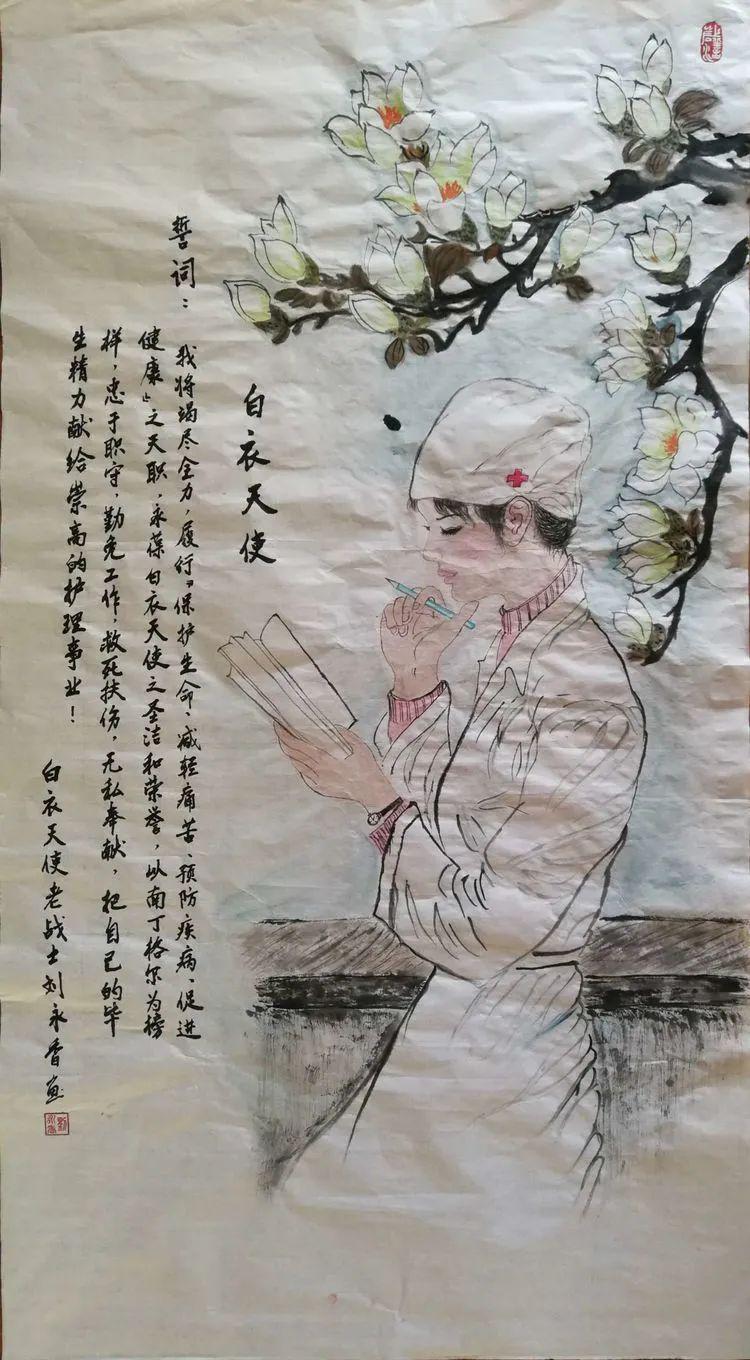 白衣天使
誓词：
我将竭尽全力，履行“保护生命、减轻痛苦、预防疾病、促进
健康”之天职，永葆白衣天使之圣洁和荣誉，以南丁格尔为榜
样，忠于职守，勤免工作，救死扶伤，无私奉献，把自己的毕
生精力献给崇高的护理事业！
白衣天使老战士刘永香画